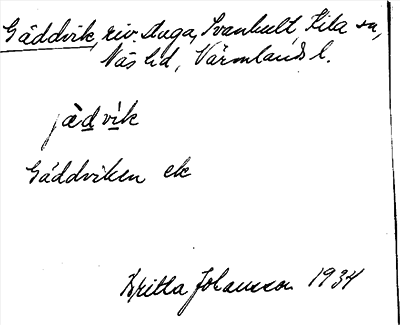 Gäddvik, riv. Auga, Svanhult, Kila sn,
Näs hd, Värmlands l.
jädvik
Gäddviken ek
Britta Johansson 1934